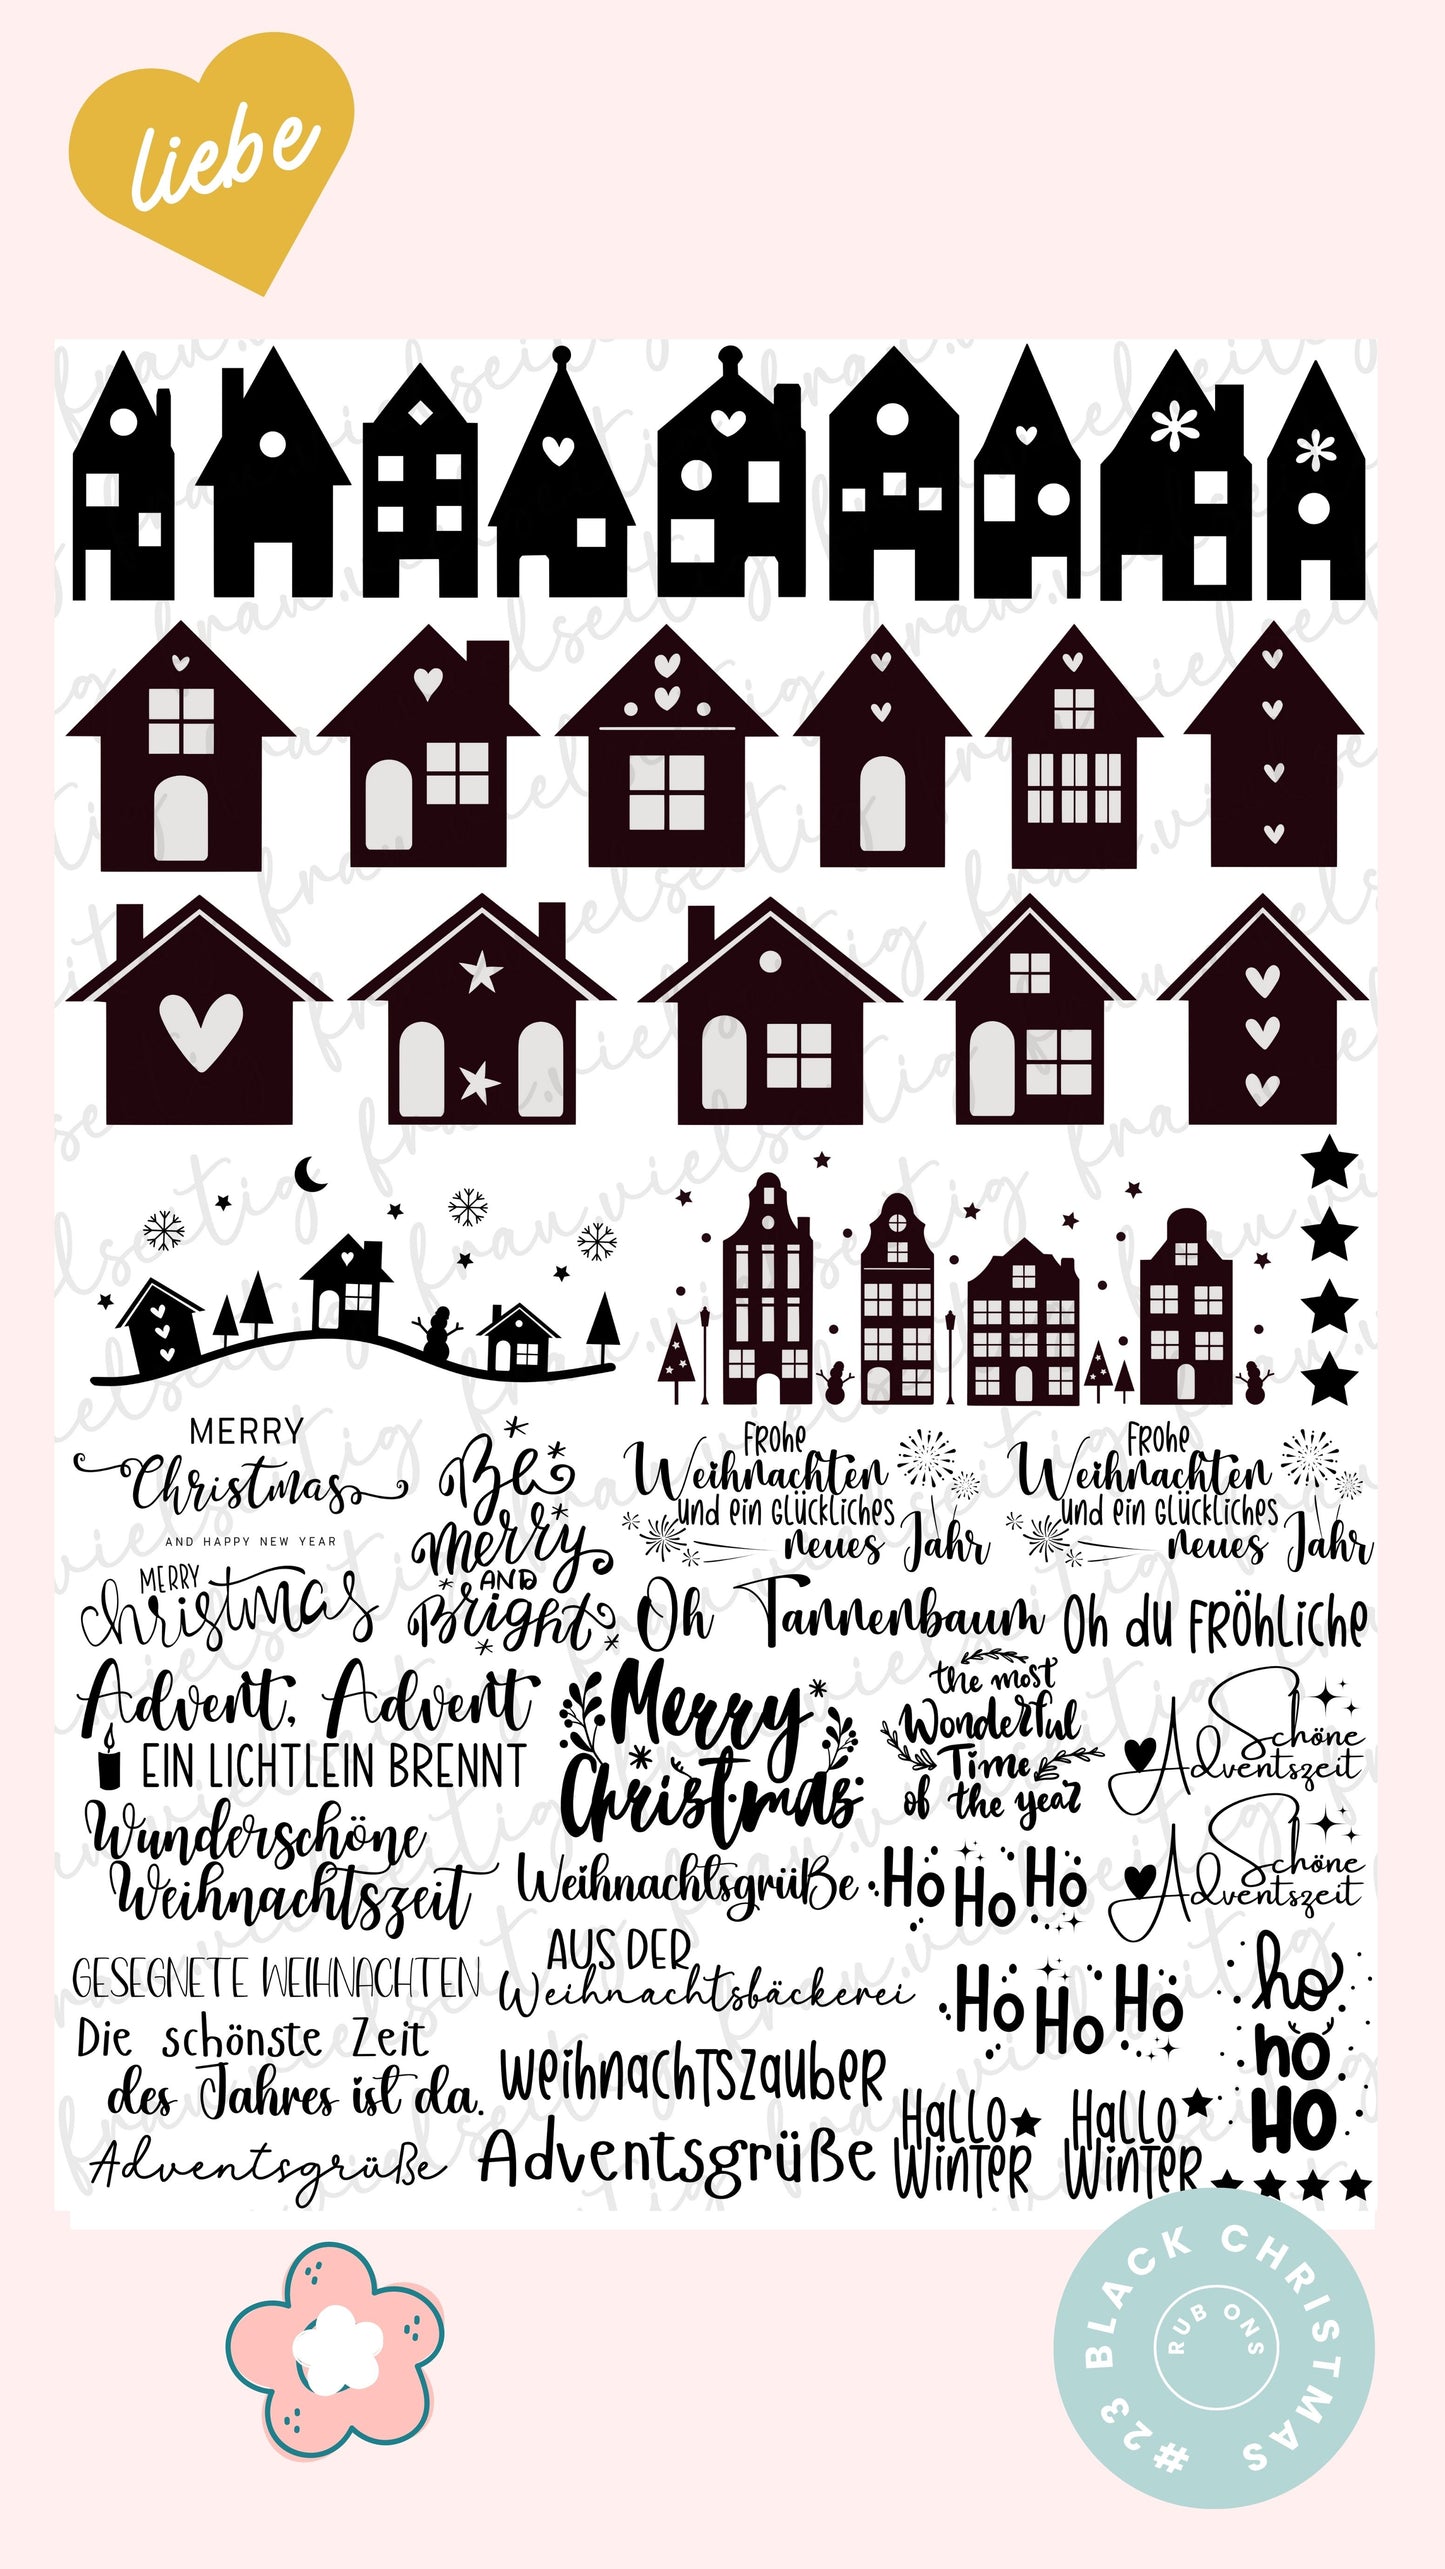 liebe
MERRY
Christmas
AND HAPPY NEW YEAR
Be
merry
AND
Bright
FROHE
Weihnachten
UND EIN GLÜCKLICHES
neues Jahr
FROHE
Weihnachten
UND EIN GLÜCKLICHES
neues Jahr
MERRY
christmas
Oh Tannenbaum
Oh du FRÖHLICHE
Advent, Advent
EIN LICHTLEIN BRENNT
Merry
Christmas
the most
Wonderful
Time
of the year
Schöne
Adventszeit
Wunderschöne
Weihnachtszeit
Weihnachtsgrüße
Ho Ho Ho
Schöne
Adventszeit
GESEGNETE WEIHNACHTEN
AUS DER
Weihnachtsbäckerei
Ho Ho Ho
ho
ho
HO
Die schönste Zeit
des Jahres ist da.
WeihNachtszaubeR
Adventsgrüße
Adventsgrüße
Hallo
Winter
Hallo
Winter
#23 BLACK CHRISTMAS
RUB ONS
frau.vielseitig